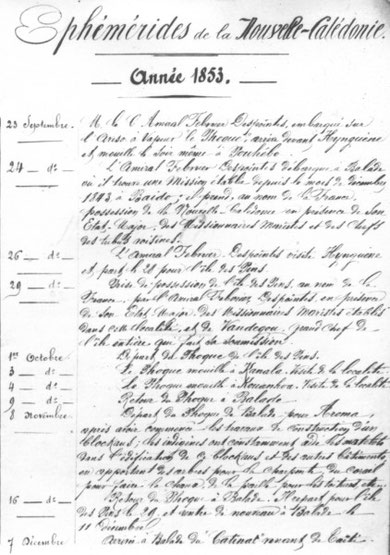 Ephémérides de la Nouvelle-Calédonie.
Année 1853.
23 Septembre. M. le C. Amiral Febvrier Despointes, embarqué sur
l'Aviso à vapeur le Phoque, arrive devant Hyenguène
et mouille le soir même à Pouébo.
24 — d° — L'Amiral Febvrier Despointes débarque à Balade
où il trouve une Mission établie depuis le mois de Décembre
1843 à Baïao; il prend, au nom de la France,
possession de la Nouvelle Calédonie en présence de son
Etat-Major, des Missionnaires Maristes et des chefs
des tribus voisines.
26 — d° L'Amiral Febvrier Despointes visite Hyenguène
et part le 28 pour l'île des Pins.
29 — d° Prise de possession de l'île des Pins, au nom de la
France, par l'Amiral Febvrier Despointes en présence
de son Etat Major, des Missionnaires Maristes établis
dans cette localité, et de Vandegou, grand chef de
l'île entière qui fait sa soumission.
1er Octobre. Départ du Phoque de l'île des Pins.
3 — d° Le Phoque mouille à Kanala. Visite de la localité.
4 — d° Le Phoque mouille à Kouaoua. Visite de la localité
9 — d° Retour du Phoque à Balade.
8 Novembre Départ du Phoque de Balade pour
après avoir commencé les travaux de construction d'un
blockaus, les indiènes ont constamment aidé les matelots
dans l'édification de ce blockaus et des autres bâtiments,
en apportant des arbres pour la charpente, du corail
pour faire la chaux, de la paille pour les toitures etc.
16 — d° Retour du Phoque à Balade. Il repart pour l'île
des Pins le 29, et rentre de nouveau à Balade le
11 Décembre.
7 Décembre Arrivée à Balade du Catinat venant de Taïti.